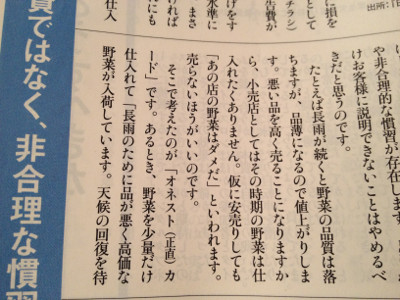 に損を
チラシ）
告費が
げをす
水準に
まさ
ければ
にも
仕入
や非合理的な慣習が存在します
けお客様に説明できないことはやめるべ
きだと思うのです。
たとえば長雨が続くと野菜の品質は落
ちますが、品薄になるので値上がりしま
す。悪い品を高く売ることになりますか
ら、小売店としてはその時期の野菜は仕
入れたくありません。仮に安売りしても
「あの店の野菜はダメだ」といわれます。
売らないほうがいいのです。
そこで考えたのが「オネスト（正直）カ
ード」です。あるとき、野菜を少量だけ
仕入れて「長雨のために品が悪く高価な
野菜が入荷しています。天候の回復を待
費ではなく、非合理な慣習